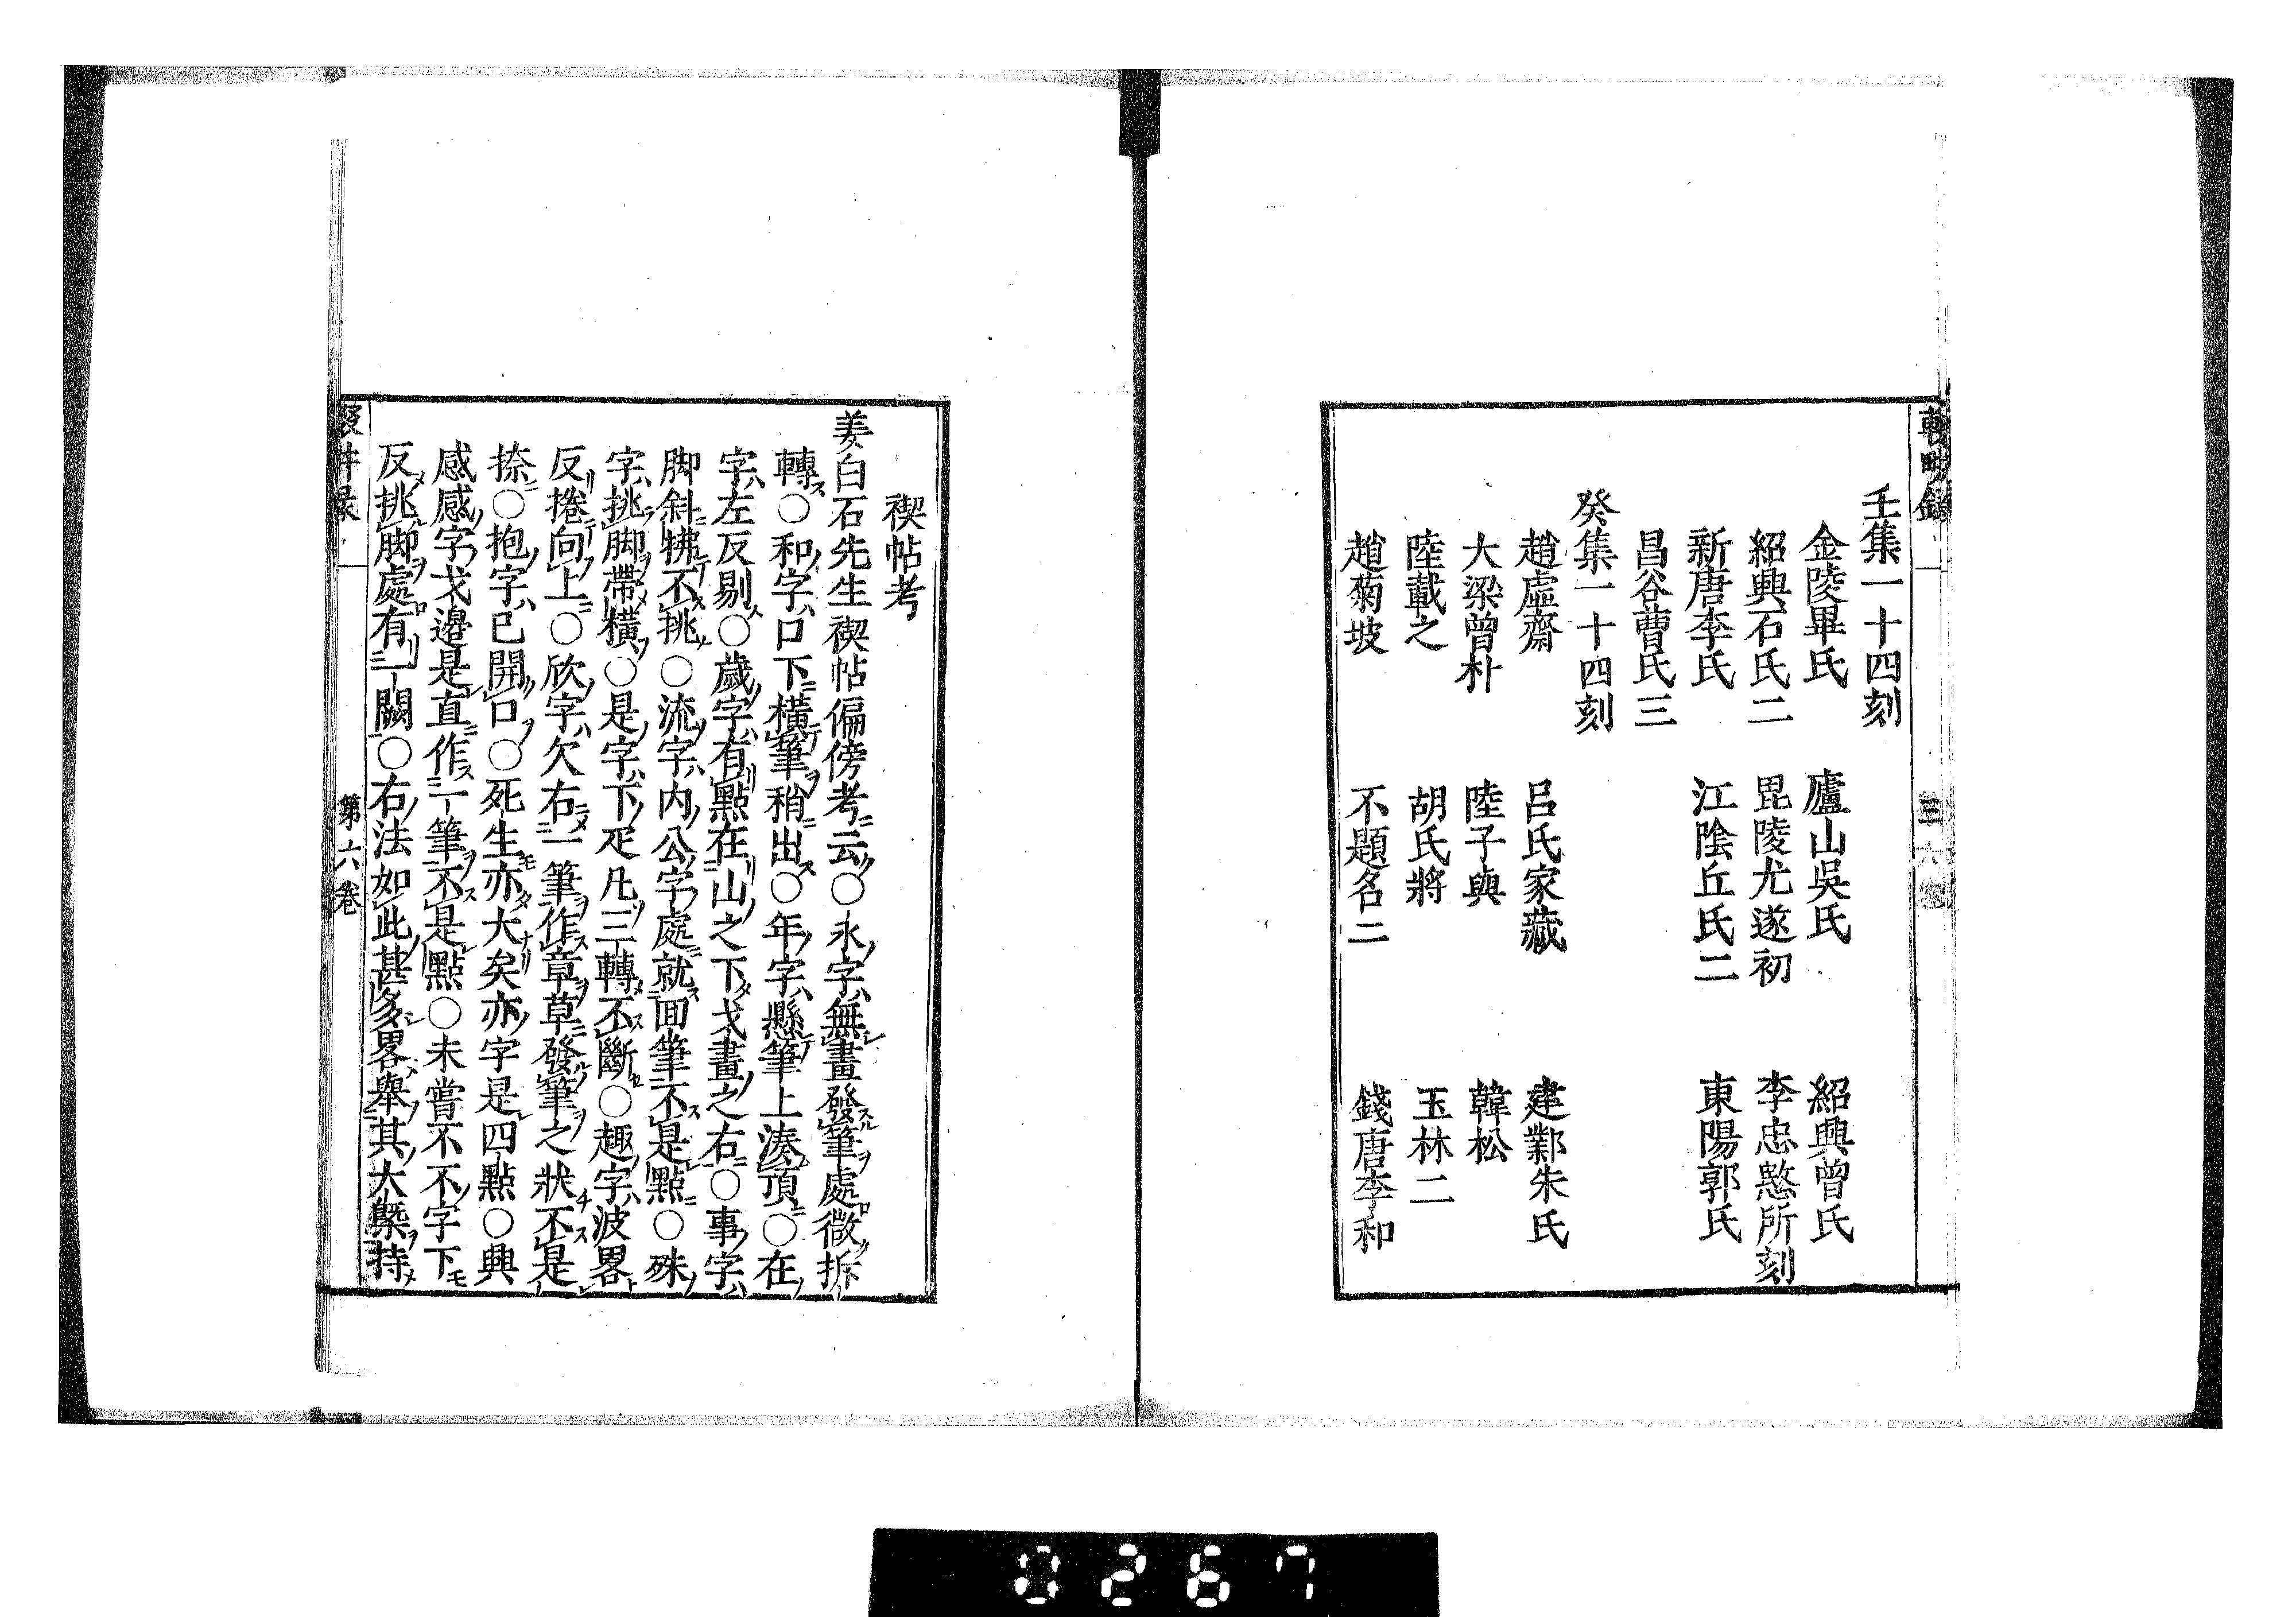 輟畊錄
壬集一十四刻
金陵畢氏　廬山吳氏　紹興曾氏
紹興石氏二　毘陵尤遂初　李忠愍所刻
新唐李氏　江陰丘氏二　東陽郭氏
昌谷曹氏三
癸集一十四刻
趙虛齋　呂氏家藏　建鄴朱氏
大梁曾朴　陸子與　韓松
陸載之　胡氏將　玉林二
趙菊坡　不題名二　錢唐李和
禊帖考
姜白石先生禊帖偏傍考云○永字無畫發筆處微拆
轉○和字口下橫筆稍出○年字懸筆上湊頂○在
字左反剔○歲字有點在山之下戈畫之右○事字
脚斜拂不挑○流字內公字處就回筆不是點○殊
字挑脚帶橫○是字下疋凡三轉不斷○趣字波畧
反捲向上○欣字欠右一筆作章草發筆之狀不是
捺○抱字已開口○死生亦大矣亦字是四點○興
感感字戈邊是直作一筆不是點○未嘗不不字下
反挑脚處有一闕○右法如此甚多畧舉其大槩持
第六卷
0267